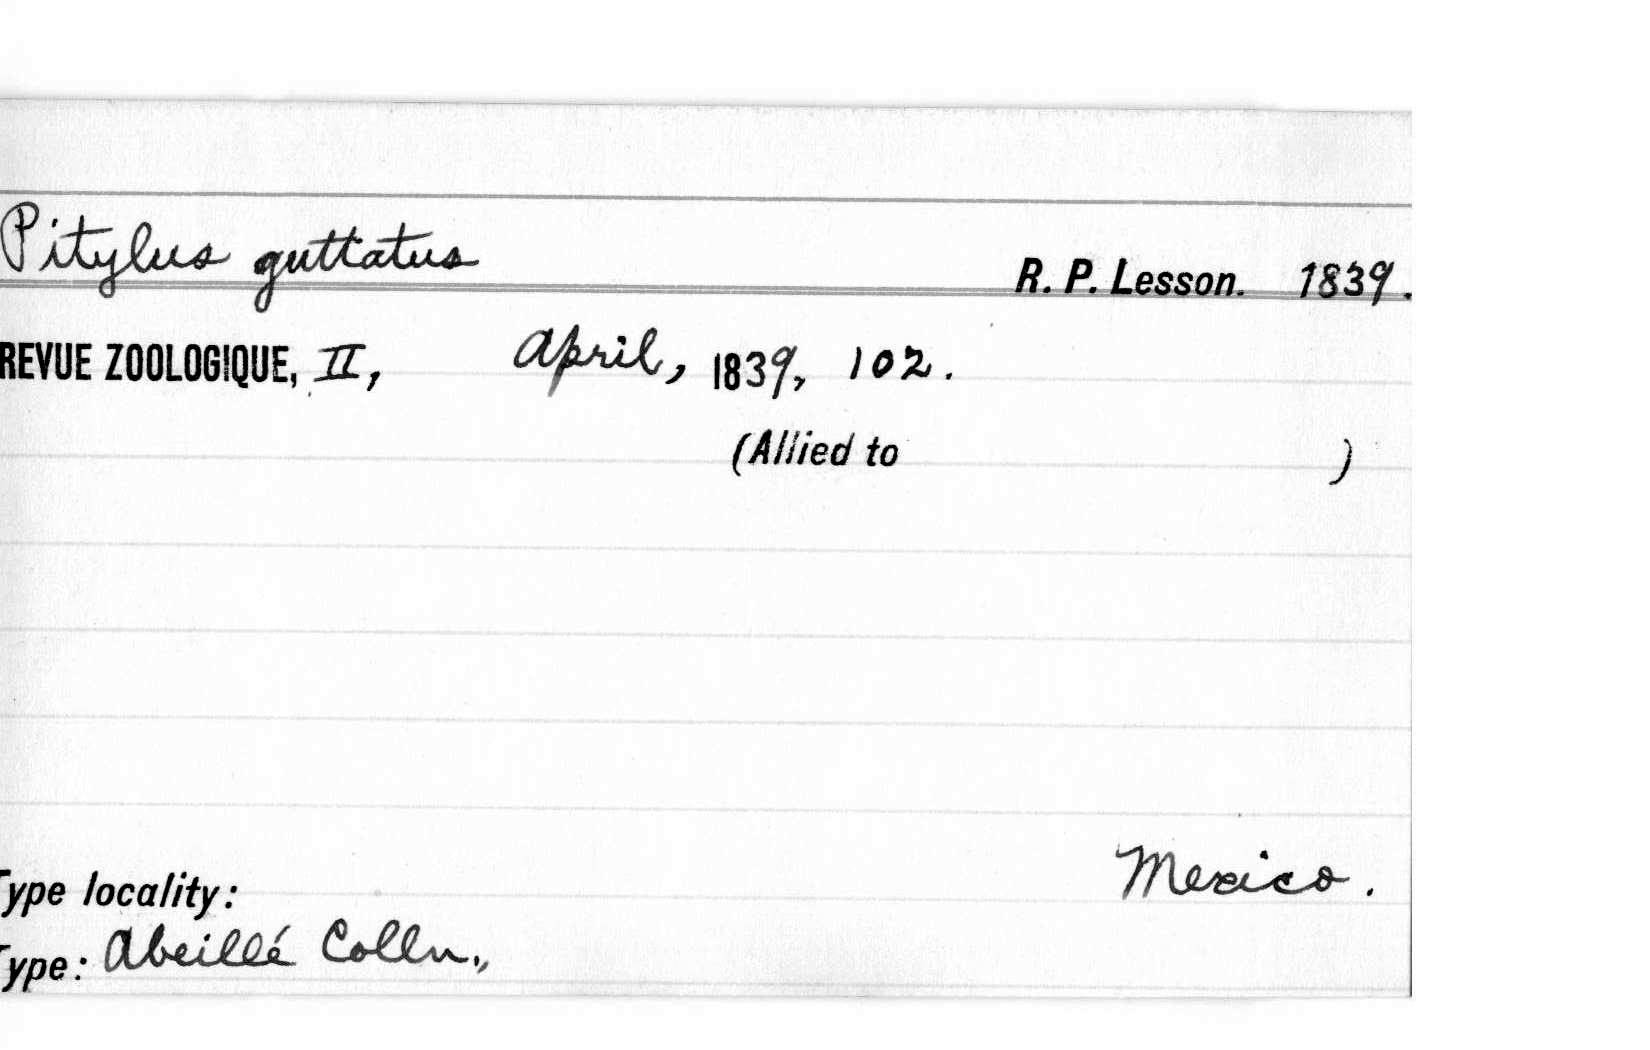 Pitylus guttatus R. P. Lesson. 1839.
REVUE ZOOLOGIQUE, II, April, 1839, 102.
(Allied to )
Type locality: Mexico.
Type: Abeillé Colln.,